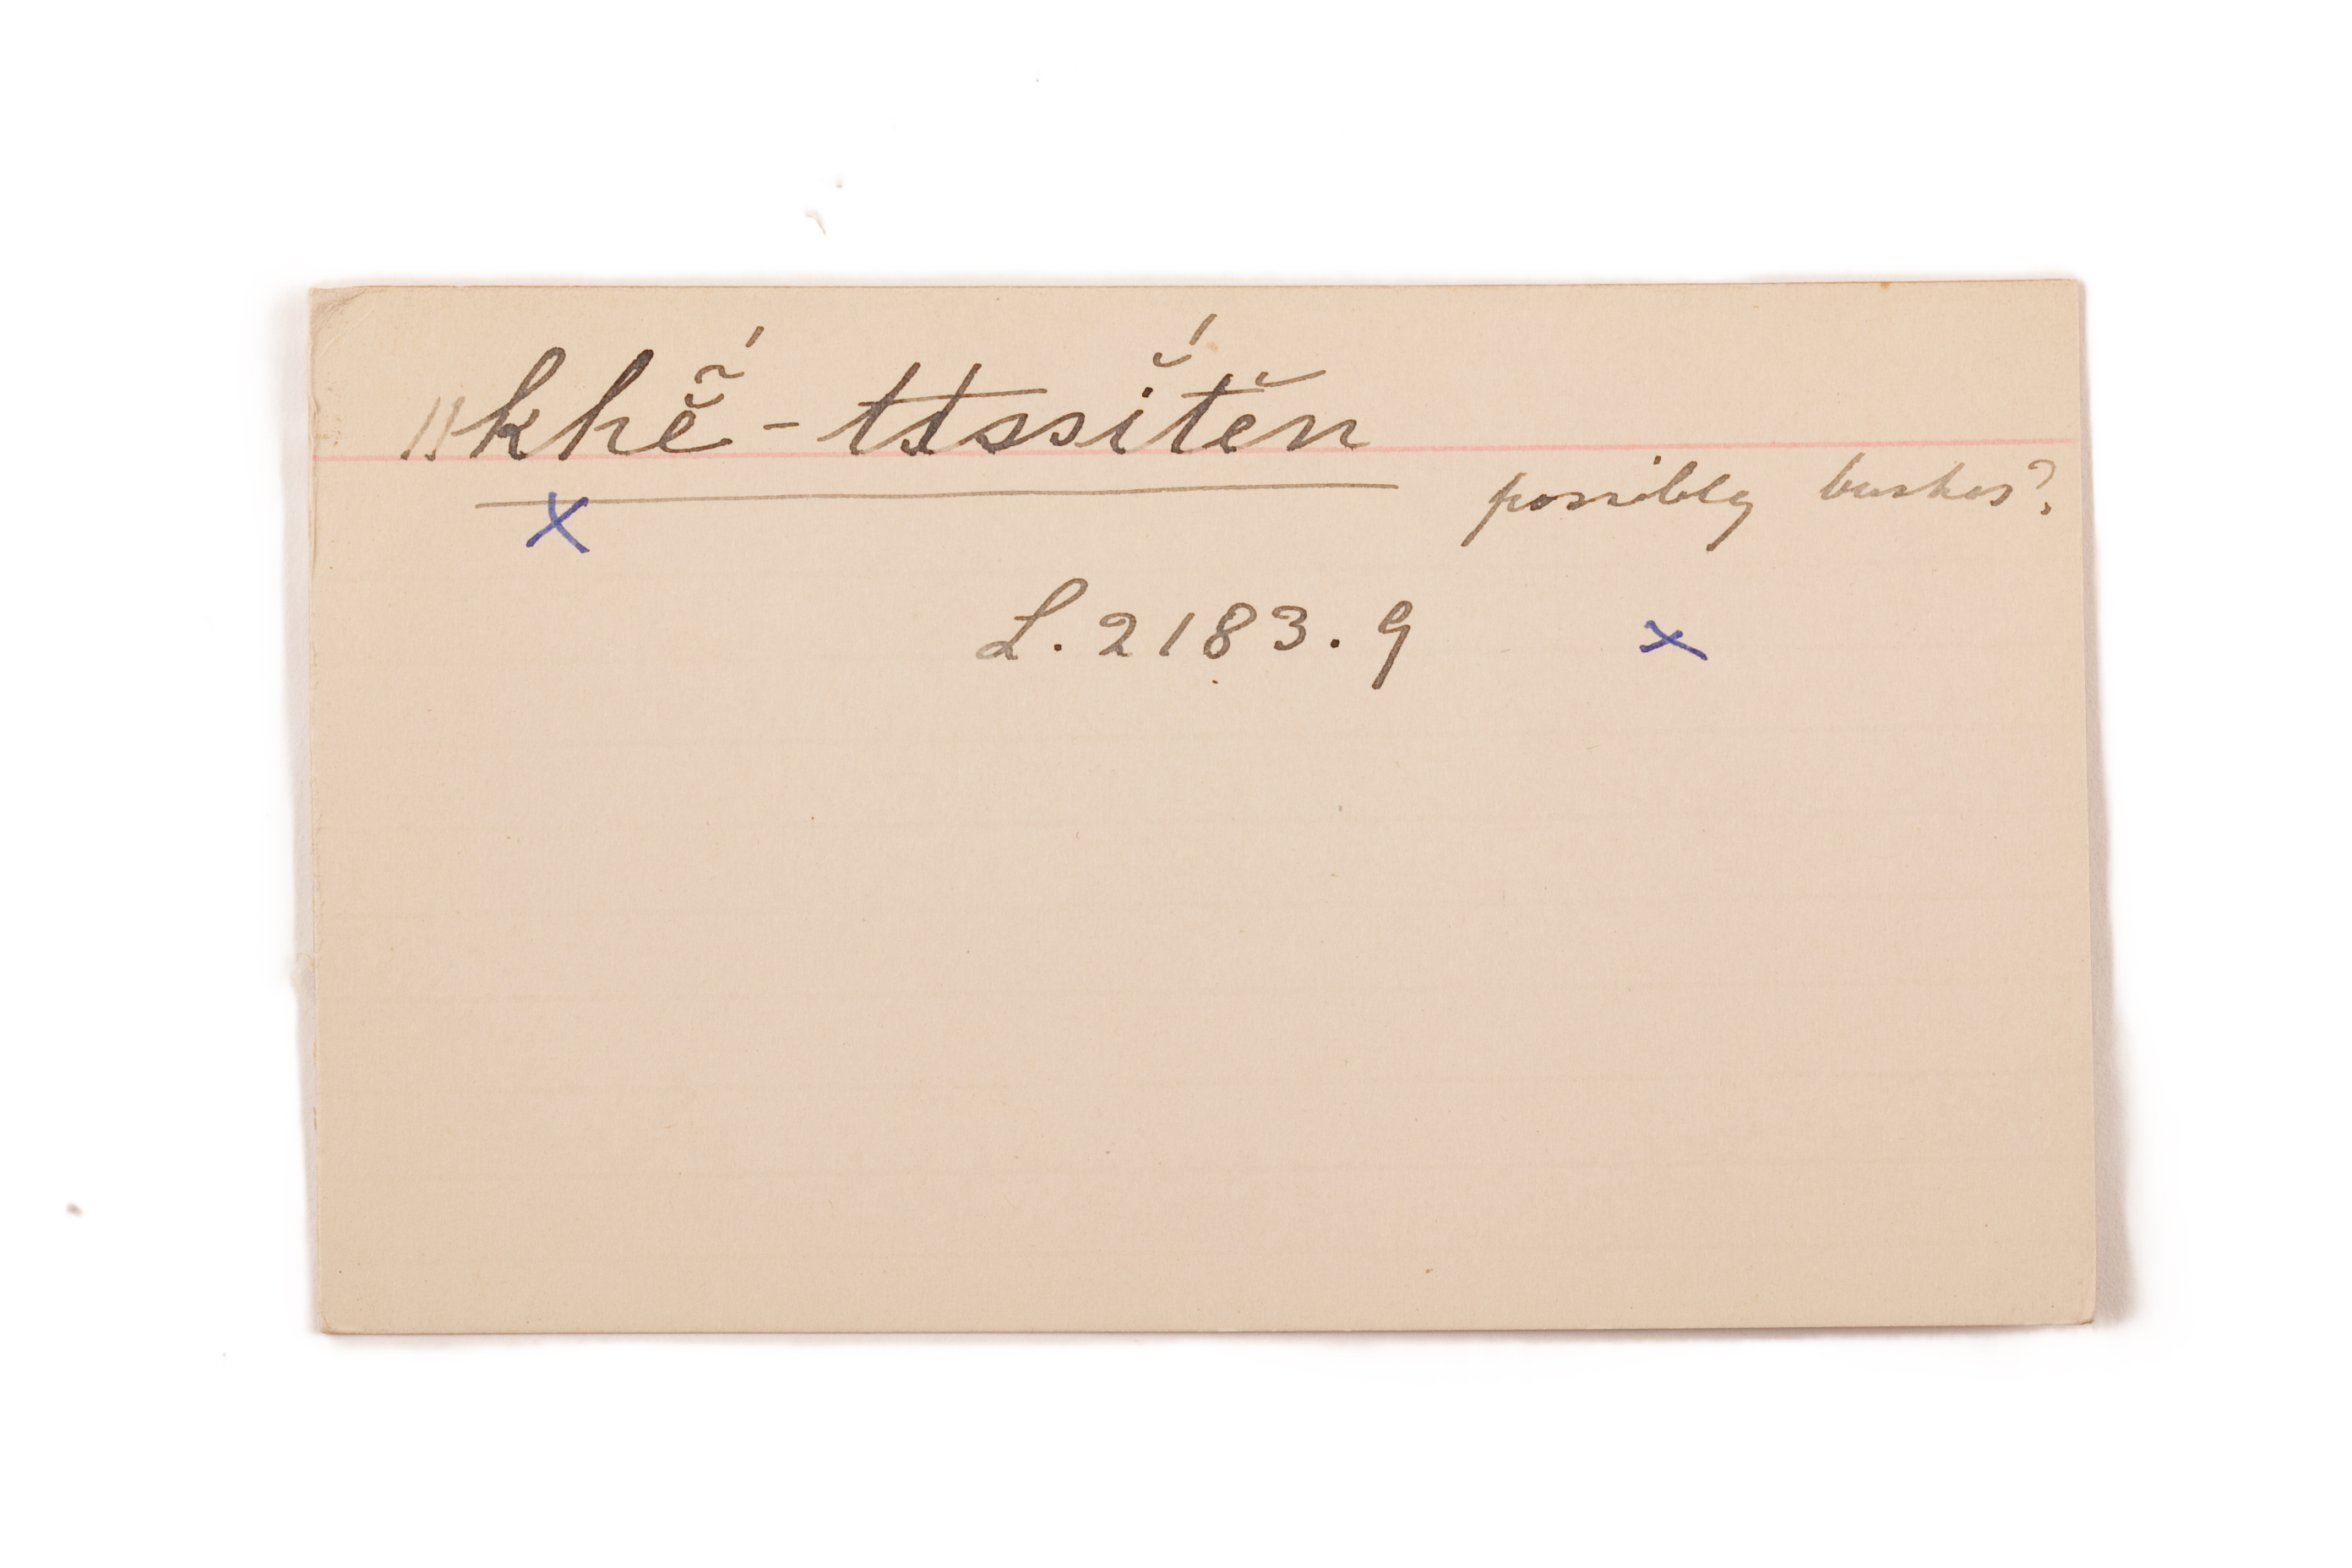 ‖khĕ̃́-ttssĭ́tĕn
possibly bushes?
x
L.2183.9 x